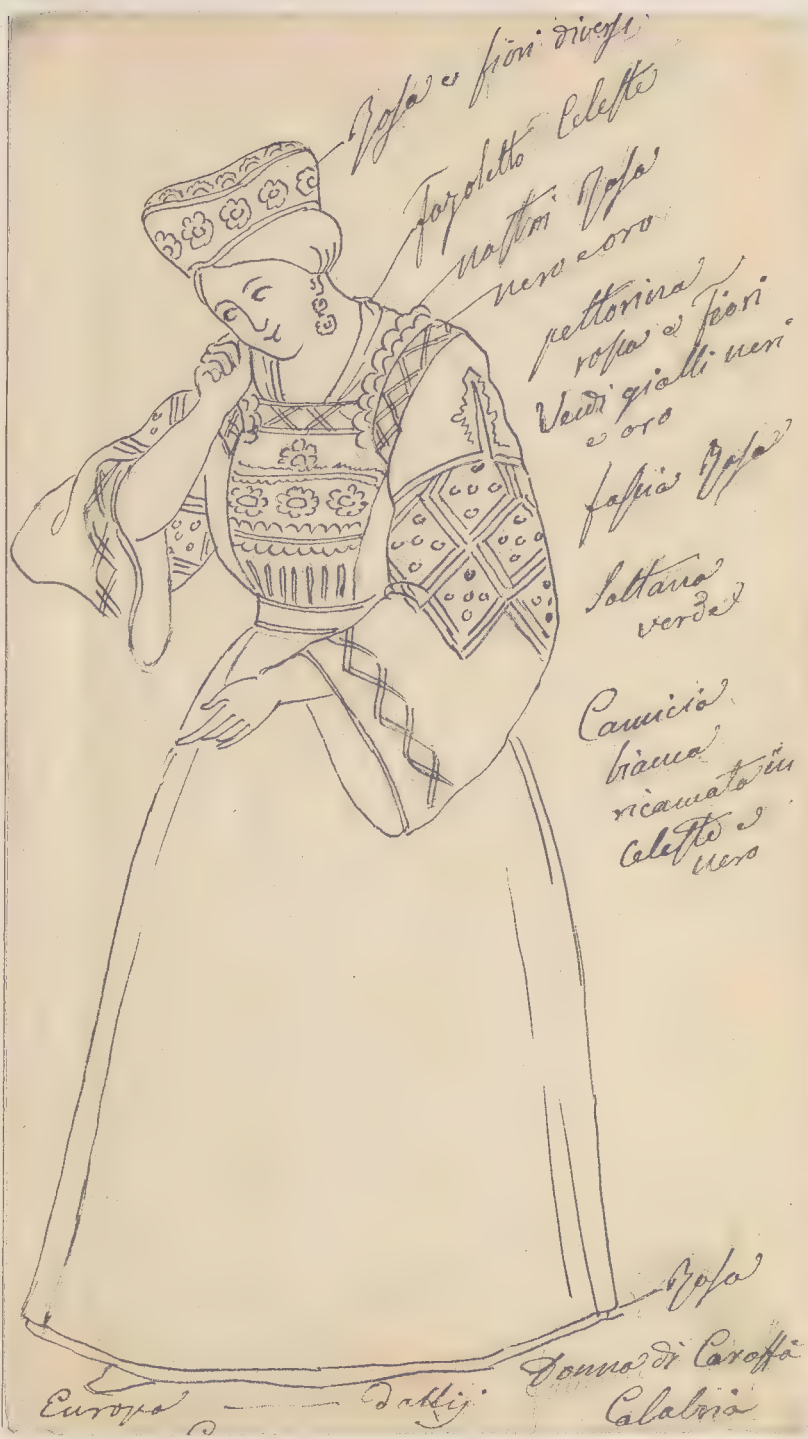 Rosa e fiori diversi
Fazoletto Celeste
nastri Rosa
nero e oro
pettorina
rosa e fiori
Verdi gialli neri
e oro
fascia Rosa
Sottana
verde
Camicia
bianca
ricamata in
Celeste e
nero
Rosa
Donna di Caroffa
Calabria
Europa